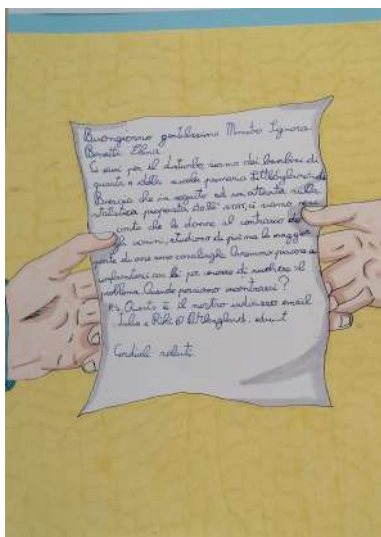 Buongiorno gentilissimo Ministro Signora
Bonetti Elena
Ci scusi per il disturbo, siamo dei bambini di
quarta e della scuola primaria Little England di
Brescia che in seguito ad un'attività sulla
statistica proposta dalle ci siamo resi
conto che le donne al contrario de
gli uomini, studiano di più ma la maggior
parte di esse sono casalinghe. Avremmo piacere a
confrontarci con lei per cercare di risolvere il
problema. Quando possiamo incontrarci?
P.S. Questo è il nostro indirizzo email
@ littleengland.edu.it
Cordiali saluti.